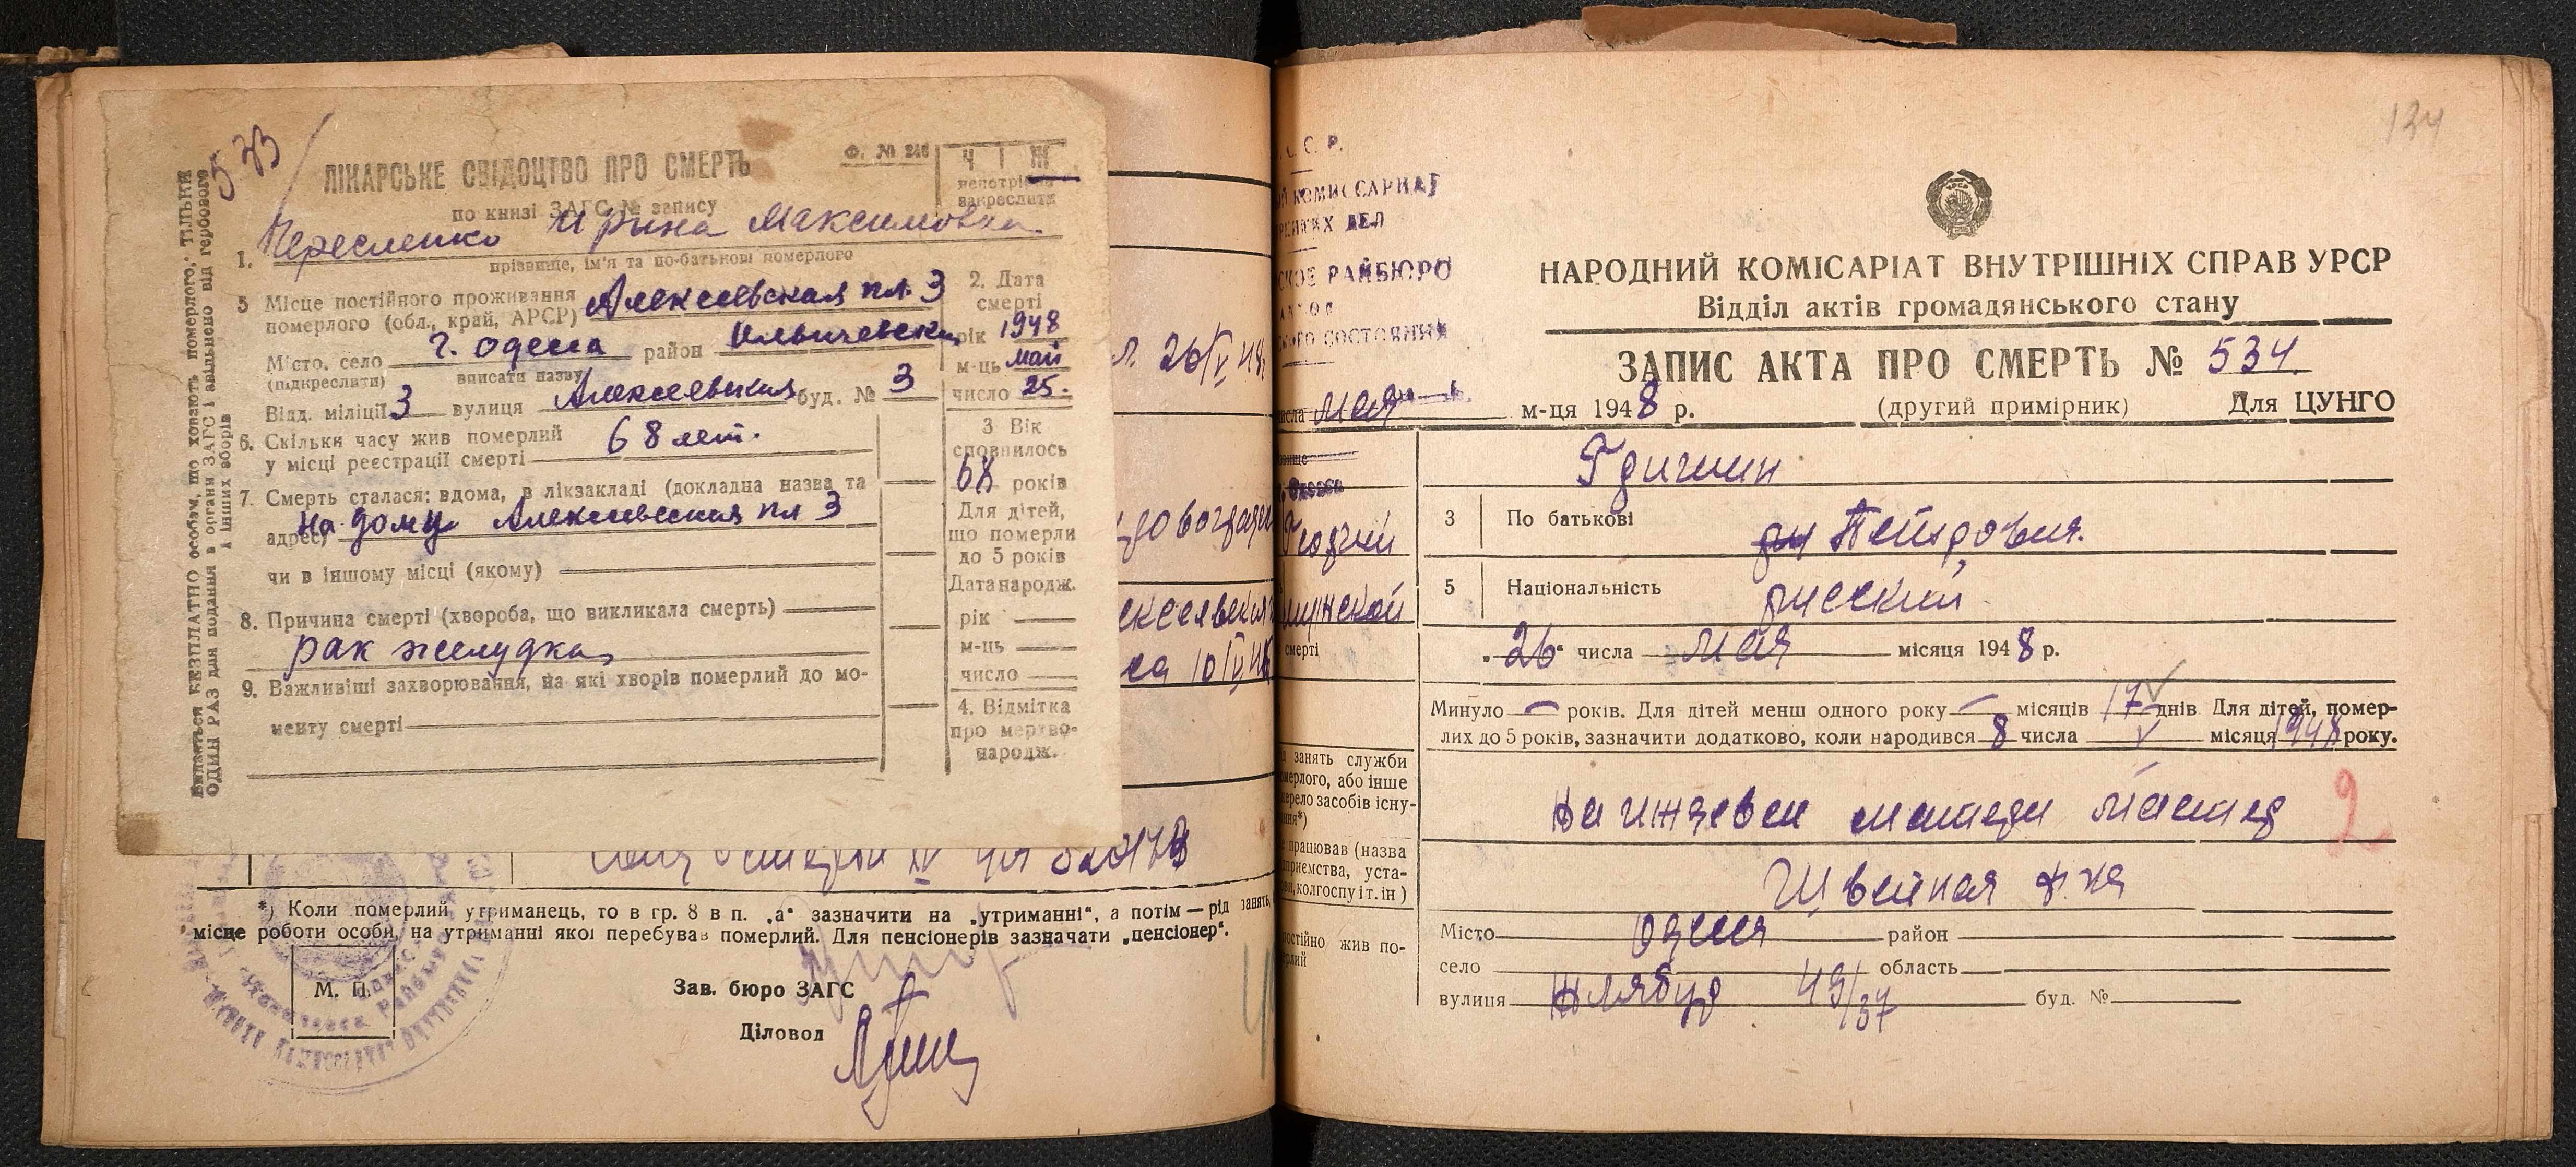 533
Ф. № 246
Ч І Ж
непотрібне
закреслити
ЛІКАРСЬКЕ СВІДОЦТВО ПРО СМЕРТЬ
по книзі ЗАГС № запису
1. Пересленко Ирина Максимовна
прізвище, ім'я та по-батькові померлого
5 Місце постійного проживання
померлого (обл., край, АРСР) Алексеевская пл. 3
Місто, село г. Одесса район Ильичевск
(підкреслити) вписати назву
Відд. міліції 3 вулиця Алексеевская буд. № 3
6. Скільки часу жив померлий
у місці реєстрації смерті 68 лет.
7. Смерть сталася: вдома, в лікзакладі (докладна назва та
адрес) на дому Алексеевская пл 3
чи в іншому місці (якому)
8. Причина смерті (хвороба, що викликала смерть)
рак желудка
9. Важливіші захворювання, на які хворів померлий до мо-
менту смерті
2. Дата
смерті
рік 1948
м-ць май
число 25.
3 Вік
сповнилось
68 років
Для дітей,
що померли
до 5 років
Дата народж.
рік
м-ць
число
4. Відмітка
про мертво-
народж.
Видається БЕЗПЛАТНО особам, що ховають померлого, ТІЛЬКИ
ОДИН РАЗ для подання в органи ЗАГС і звільнено від гербового
а інших зборів
*) Коли померлий утриманець, то в гр. 8 в п. „а“ зазначити на „утриманні“, а потім — рід занять,
місце роботи особи, на утриманні якої перебував померлий. Для пенсіонерів зазначати „пенсіонер“.
М. П.
Зав. бюро ЗАГС
Діловод
134
С. С. Р.
КОМИССАРИАТ
ДЕЛ
РАЙБЮРО
СОСТОЯНИЯ
НАРОДНИЙ КОМІСАРІАТ ВНУТРІШНІХ СПРАВ УРСР
Відділ актів громадянського стану
ЗАПИС АКТА ПРО СМЕРТЬ № 534.
числа мая м-ця 1948 р. (другий примірник) Для ЦУНГО
3 По батькові Петрович.
5 Національність русский
смерті „26“ числа мая місяця 1948 р.
Минуло — років. Для дітей менш одного року — місяців 17 днів Для дітей, помер-
лих до 5 років, зазначити додатково, коли народився 8 числа V місяця 1948 року.
занять служби
померлого, або інше
джерело засобів існу-
ання*)
На иждевен матери мастер
2
працював (назва
приємства, уста-
ви, колгоспу і т. ін)
Швейная ф-ка
постійно жив по-
мерлий
Місто Одесса район
село область
вулиця Жлябур 49/37 буд. №